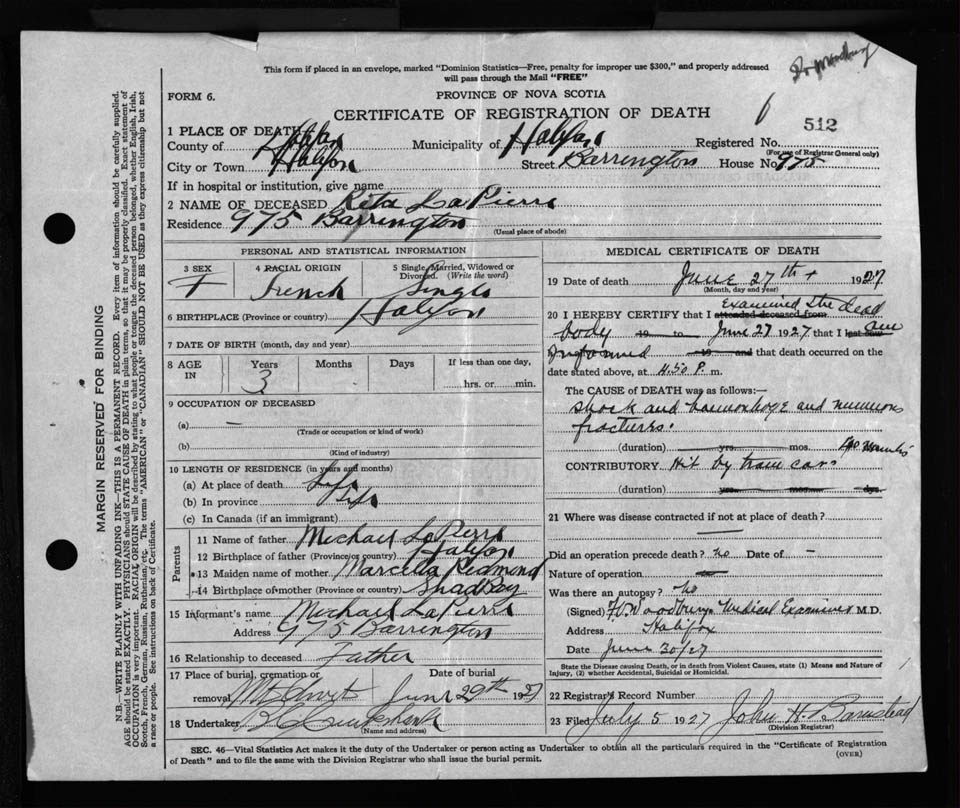 This form if placed in an envelope, marked "Dominion Statistics—Free, penalty for improper use $300," and properly addressed
will pass through the Mail "FREE"
FORM 6.
PROVINCE OF NOVA SCOTIA
CERTIFICATE OF REGISTRATION OF DEATH
512
1 PLACE OF DEATH
County of Hfx Municipality of Halifax Registered No.
(For use of Registrar General only)
City or Town Halifax Street Barrington House No 975
If in hospital or institution, give name
2 NAME OF DECEASED Rita LaPierre
Residence 975 Barrington
(Usual place of abode)
PERSONAL AND STATISTICAL INFORMATION
3 SEX F
4 RACIAL ORIGIN French
5 Single, Married, Widowed or Divorced. (Write the word) Single
6 BIRTHPLACE (Province or country) Halifax
7 DATE OF BIRTH (month, day and year)
8 AGE IN Years 3 Months Days If less than one day,
hrs. or min.
9 OCCUPATION OF DECEASED
(a) —
(Trade or occupation or kind of work)
(b)
(Kind of industry)
10 LENGTH OF RESIDENCE (in years and months)
(a) At place of death Life
(b) In province Life
(c) In Canada (if an immigrant)
Parents
11 Name of father Michael LaPierre
12 Birthplace of father (Province or country) Halifax
13 Maiden name of mother Marcella Redmond
14 Birthplace of mother (Province or country) Shad Bay
15 Informant's name Michael LaPierre
Address 975 Barrington
16 Relationship to deceased Father
17 Place of burial, cremation or removal Mt Olivet Date of burial June 29th 1927
18 Undertaker
(Name and address)
MEDICAL CERTIFICATE OF DEATH
19 Date of death June 27th 1927
(Month, day and year)
20 I HEREBY CERTIFY that I attended deceased from Examined the dead
body 19 to June 27 1927 that I last saw am
Informed 19 and that death occurred on the
date stated above, at 4.50 P. m.
The CAUSE of DEATH was as follows:—
shock and haemorrhage and numerous
fractures.
(duration) yrs. mos.
CONTRIBUTORY Hit by tram car
(duration) yrs. mos. ds.
21 Where was disease contracted if not at place of death?
—
Did an operation precede death? no Date of —
Nature of operation —
Was there an autopsy? no
(Signed) Woodbury Medical Examiner M.D.
Address Halifax
Date June 30/27
State the Disease causing Death, or in death from Violent Causes, state (1) Means and Nature of
Injury, (2) whether Accidental, Suicidal or Homicidal.
22 Registrar's Record Number
23 Filed July 5 1927 John H Barnstead
(Division Registrar)
SEC. 46—Vital Statistics Act makes it the duty of the Undertaker or person acting as Undertaker to obtain all the particulars required in the "Certificate of Registration
of Death" and to file the same with the Division Registrar who shall issue the burial permit.
(OVER)
MARGIN RESERVED FOR BINDING
N.B.—WRITE PLAINLY WITH UNFADING INK—THIS IS A PERMANENT RECORD. Every item of information should be carefully supplied.
AGE should be stated EXACTLY. PHYSICIANS should STATE CAUSE OF DEATH in plain terms, so that it may be properly classified. Exact statement of
OCCUPATION is very important. RACIAL ORIGIN will be described by stating to what people or tongue the deceased person belonged, whether English, Irish,
Scotch, French, German, Russian, Ruthenian, etc. The terms "AMERICAN" or "CANADIAN" SHOULD NOT BE USED as they express citizenship but not
a race or people. See instructions on back of Certificate.